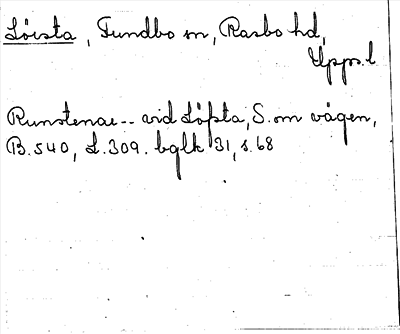 Lövsta, Funbo sn, Rasbo hd,
Upps. l
Runstenar -- vid Löfsta, S. om vägen,
B. 540, L. 309. bglk 31, s. 68